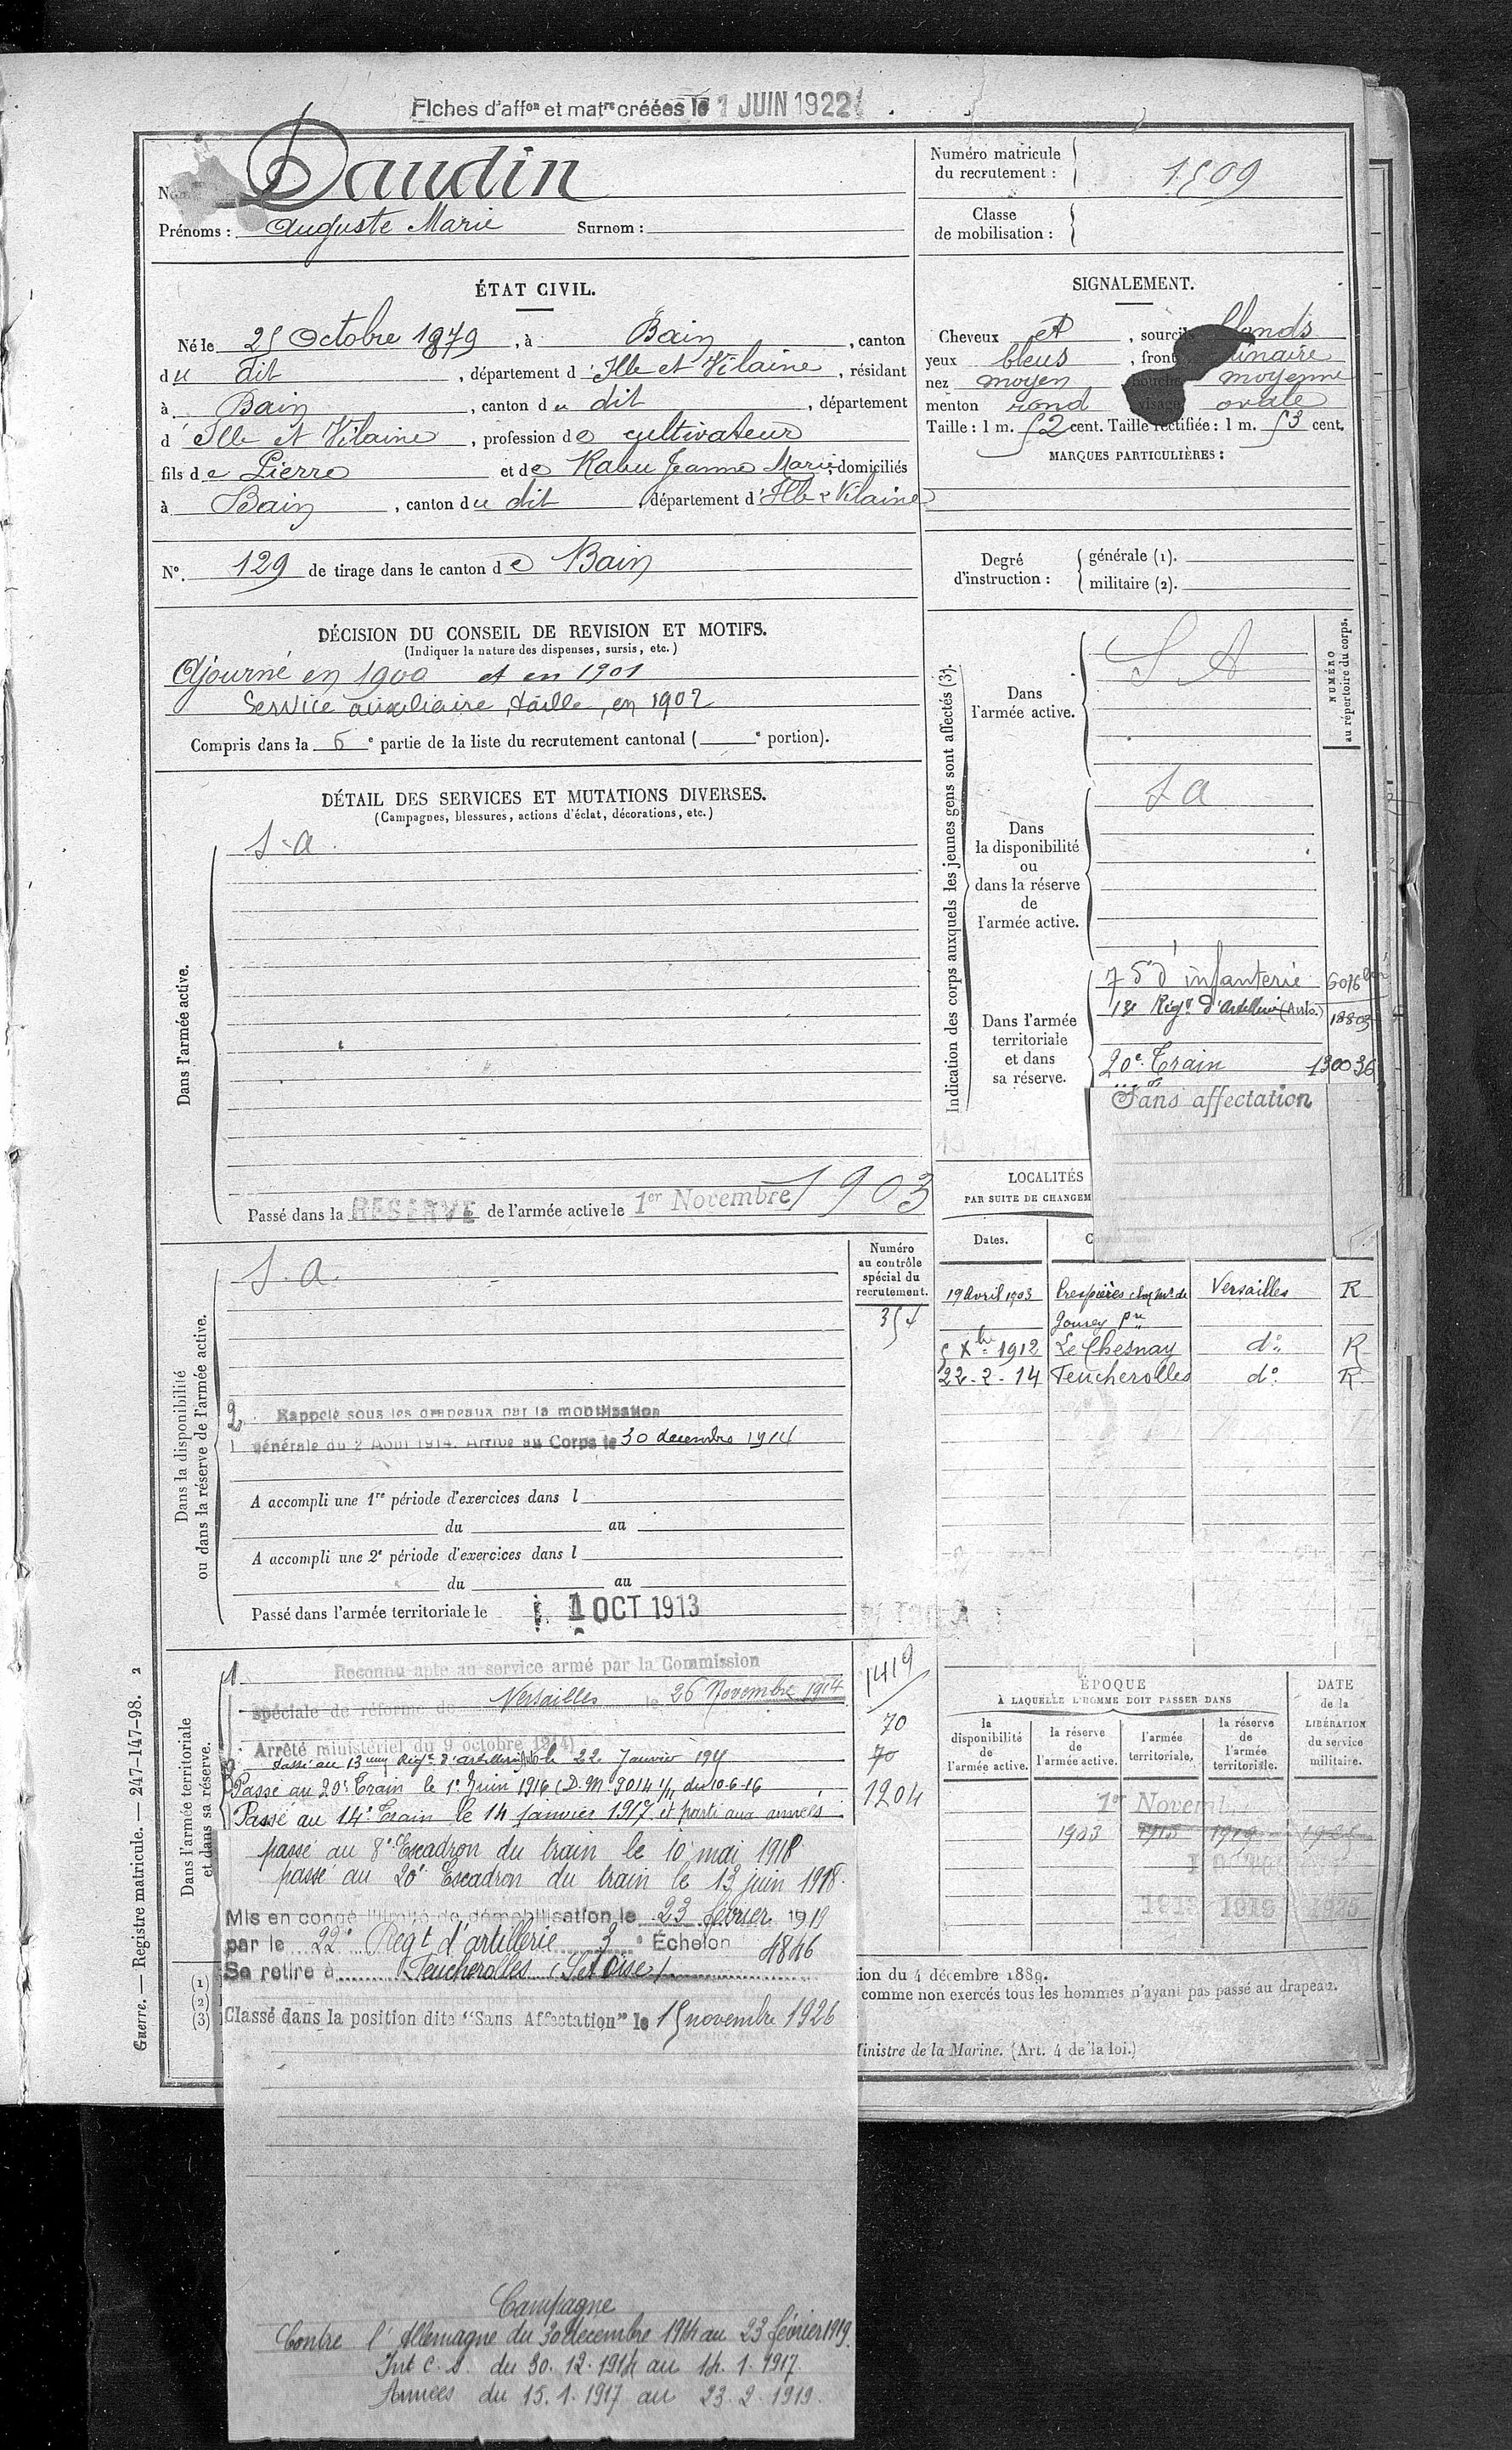 Fiches d'affon et matre créées le 1 JUIN 1922
Daudin
Prénoms : Auguste Marie Surnom :
Numéro matricule du recrutement : 1509
Classe de mobilisation :
ÉTAT CIVIL.
Né le 25 Octobre 1879, à Bain, canton
du dit, département d'Ille et Vilaine, résidant
à Bain, canton du dit, département
d'Ille et Vilaine, profession de cultivateur
fils de Pierre et de Rabu Jeanne Marie, domiciliés
à Bain, canton du dit, département d'Ille & Vilaine
N° 129 de tirage dans le canton de Bain
SIGNALEMENT.
Cheveux et, sourcils blonds
yeux bleus, front
nez moyen, bouche moyenne
menton rond, visage ovale
Taille : 1 m. 52 cent. Taille rectifiée : 1 m. 53 cent.
MARQUES PARTICULIÈRES :
Degré d'instruction : générale (1).
militaire (2).
DÉCISION DU CONSEIL DE REVISION ET MOTIFS.
(Indiquer la nature des dispenses, sursis, etc.)
Ajourné en 1900 et en 1901
Service auxiliaire, taille, en 1902
Compris dans la 6e partie de la liste du recrutement cantonal ( e portion).
DÉTAIL DES SERVICES ET MUTATIONS DIVERSES.
(Campagnes, blessures, actions d'éclat, décorations, etc.)
Dans l'armée active.
S. A.
Passé dans la RÉSERVE de l'armée active le 1er Novembre 1903
Indication des corps auxquels les jeunes gens sont affectés (3).
NUMÉRO au répertoire du corps.
Dans l'armée active.
S A
Dans la disponibilité ou dans la réserve de l'armée active.
S A
Dans l'armée territoriale et dans sa réserve.
75 d'infanterie 6016
13e Régt d'Artillerie (Auto.) 18803
20e Train 130036
Sans affectation
LOCALITÉS
PAR SUITE DE CHANGEM
Dates.
19 Avril 1903 Crespières Versailles R
5 Xbre 1912 Le Chesnay do R
22-2-14 Feucherolles do R
Dans la disponibilité ou dans la réserve de l'armée active.
S. A.
Numéro au contrôle spécial du recrutement.
354
2 Rappelé sous les drapeaux par la mobilisation
générale du 2 Août 1914. Arrivé au Corps le 30 décembre 1914
A accompli une 1re période d'exercices dans l
du au
A accompli une 2e période d'exercices dans l
du au
Passé dans l'armée territoriale le 1 OCT 1913
Dans l'armée territoriale et dans sa réserve.
1 Reconnu apte au service armé par la Commission
spéciale de réforme de Versailles le 26 Novembre 1914
Arrêté ministériel du 9 octobre 1914)
Passé au 13eme Régt d'artillerie le 22 Janvier 191
Passé au 20e Train le 1e Juin 1916 (D.M. 9014 1/11 du 10-6-16
Passé au 14e Train le 14 janvier 1917 et parti aux armées
passé au 8e Escadron du train le 10 mai 1918
passé au 20e Escadron du train le 13 juin 1918.
Mis en congé illimité de démobilisation le 23 février 1919
par le 22e Regt d'artillerie 3e Échelon 4846
Se retire à Feucherolles (S et Oise)
Classé dans la position dite "Sans Affectation" le 15 novembre 1926
1419
70
70
1204
ÉPOQUE
À LAQUELLE L'HOMME DOIT PASSER DANS
la disponibilité de l'armée active.
la réserve de l'armée active.
l'armée territoriale.
la réserve de l'armée territoriale.
DATE de la LIBÉRATION du service militaire.
1er Novem
1903 1913 1919
1913 1919 1925
(1)
(2)
(3)
ion du 4 décembre 1889.
comme non exercés tous les hommes n'ayant pas passé au drapeau.
Ministre de la Marine. (Art. 4 de la loi.)
Guerre. — Registre matricule. — 247-147-98. 2
Campagne
Contre l'Allemagne du 30 décembre 1914 au 23 février 1919.
Int C. S. du 30.12.1914 au 14.1.1917.
Armées du 15.1.1917 au 23.2.1919.